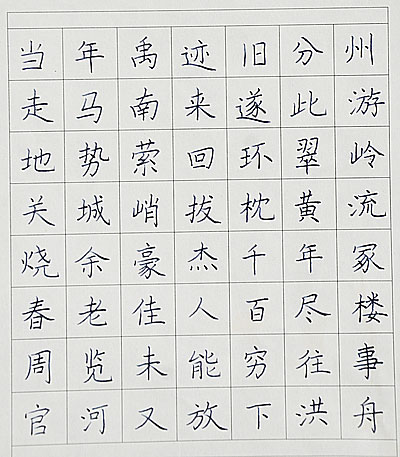 当年禹迹旧分州
走马南来遂此游
地势萦回环翠岭
关城峭拔枕黄流
烧余豪杰千年冢
春老佳人百尽楼
周览未能穷往事
官河又放下洪舟